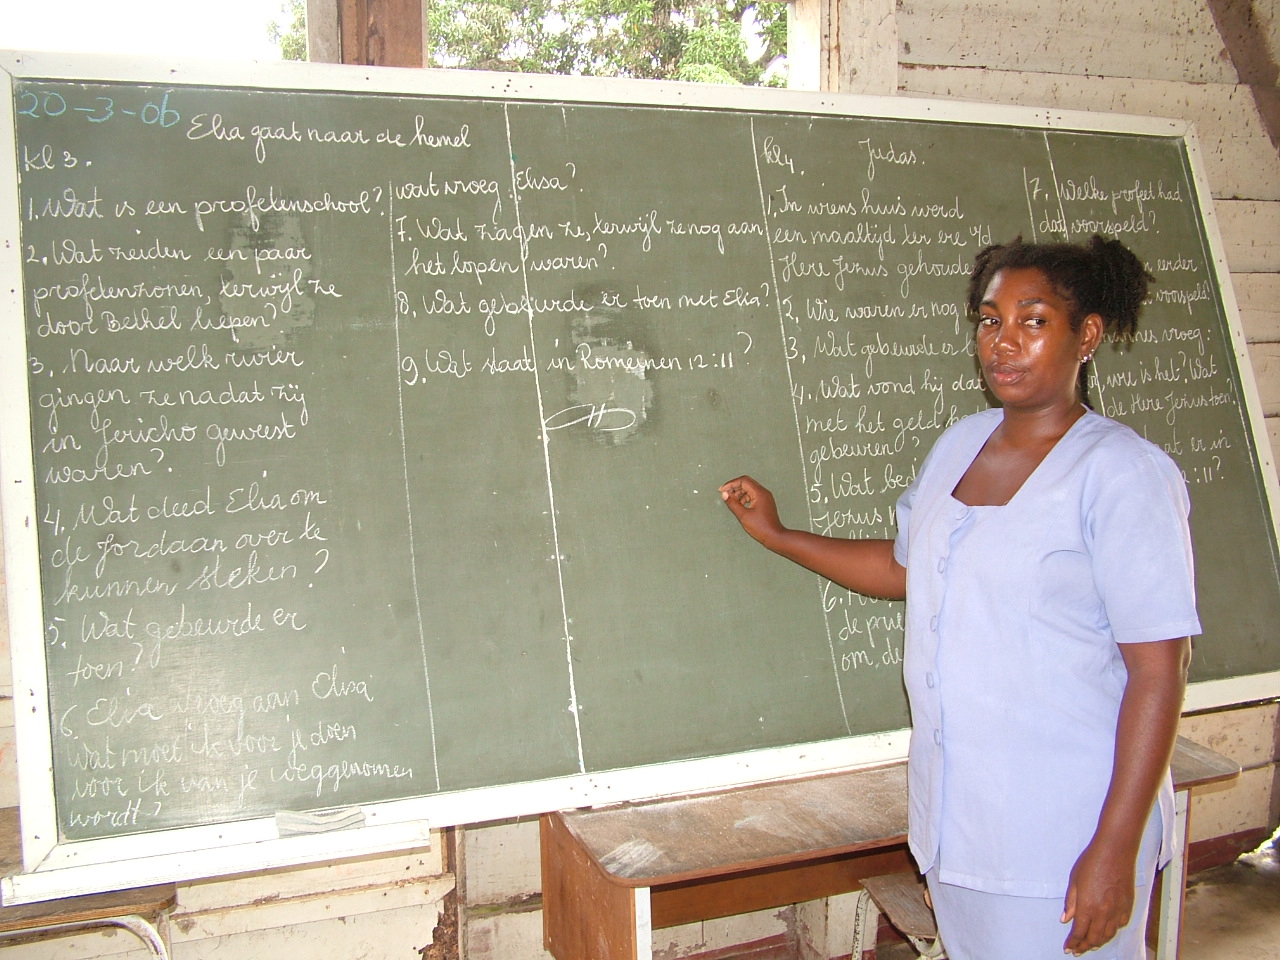 20-3-06
Elia gaat naar de hemel
kl 3.
1. Wat is een profetenschool?
2. Wat zeiden een paar
profetenzonen, terwijl ze
door Bethel liepen?
3. Naar welk rivier
gingen ze nadat zij
in Jericho geweest
waren?
4. Wat deed Elia om
de Jordaan over te
kunnen steken?
5. Wat gebeurde er
toen?
6. Elia vroeg aan Elisa
wat moet ik voor je doen
voor ik van je weggenomen
wordt?
wat vroeg Elisa?
7. Wat zagen ze, terwijl ze nog aan
het lopen waren?
8. Wat gebeurde er toen met Elia?
9. Wat staat in Romeinen 12:11?
kl 4. Judas.
1. In wiens huis werd
een maaltijd ter ere v/d
Here Jezus gehoude
2. Wie waren er nog
3. Wat gebeurde er
4. Wat vond hij dat
met het geld
gebeuren?
5. Wat bed
Jezus
6.
de prie
om, de
7. Welke profeet had
dat voorspeld?
eerder
voorspeld?
vroeg:
wie is het? Wat
de Here Jezus toen?
er in
:11?